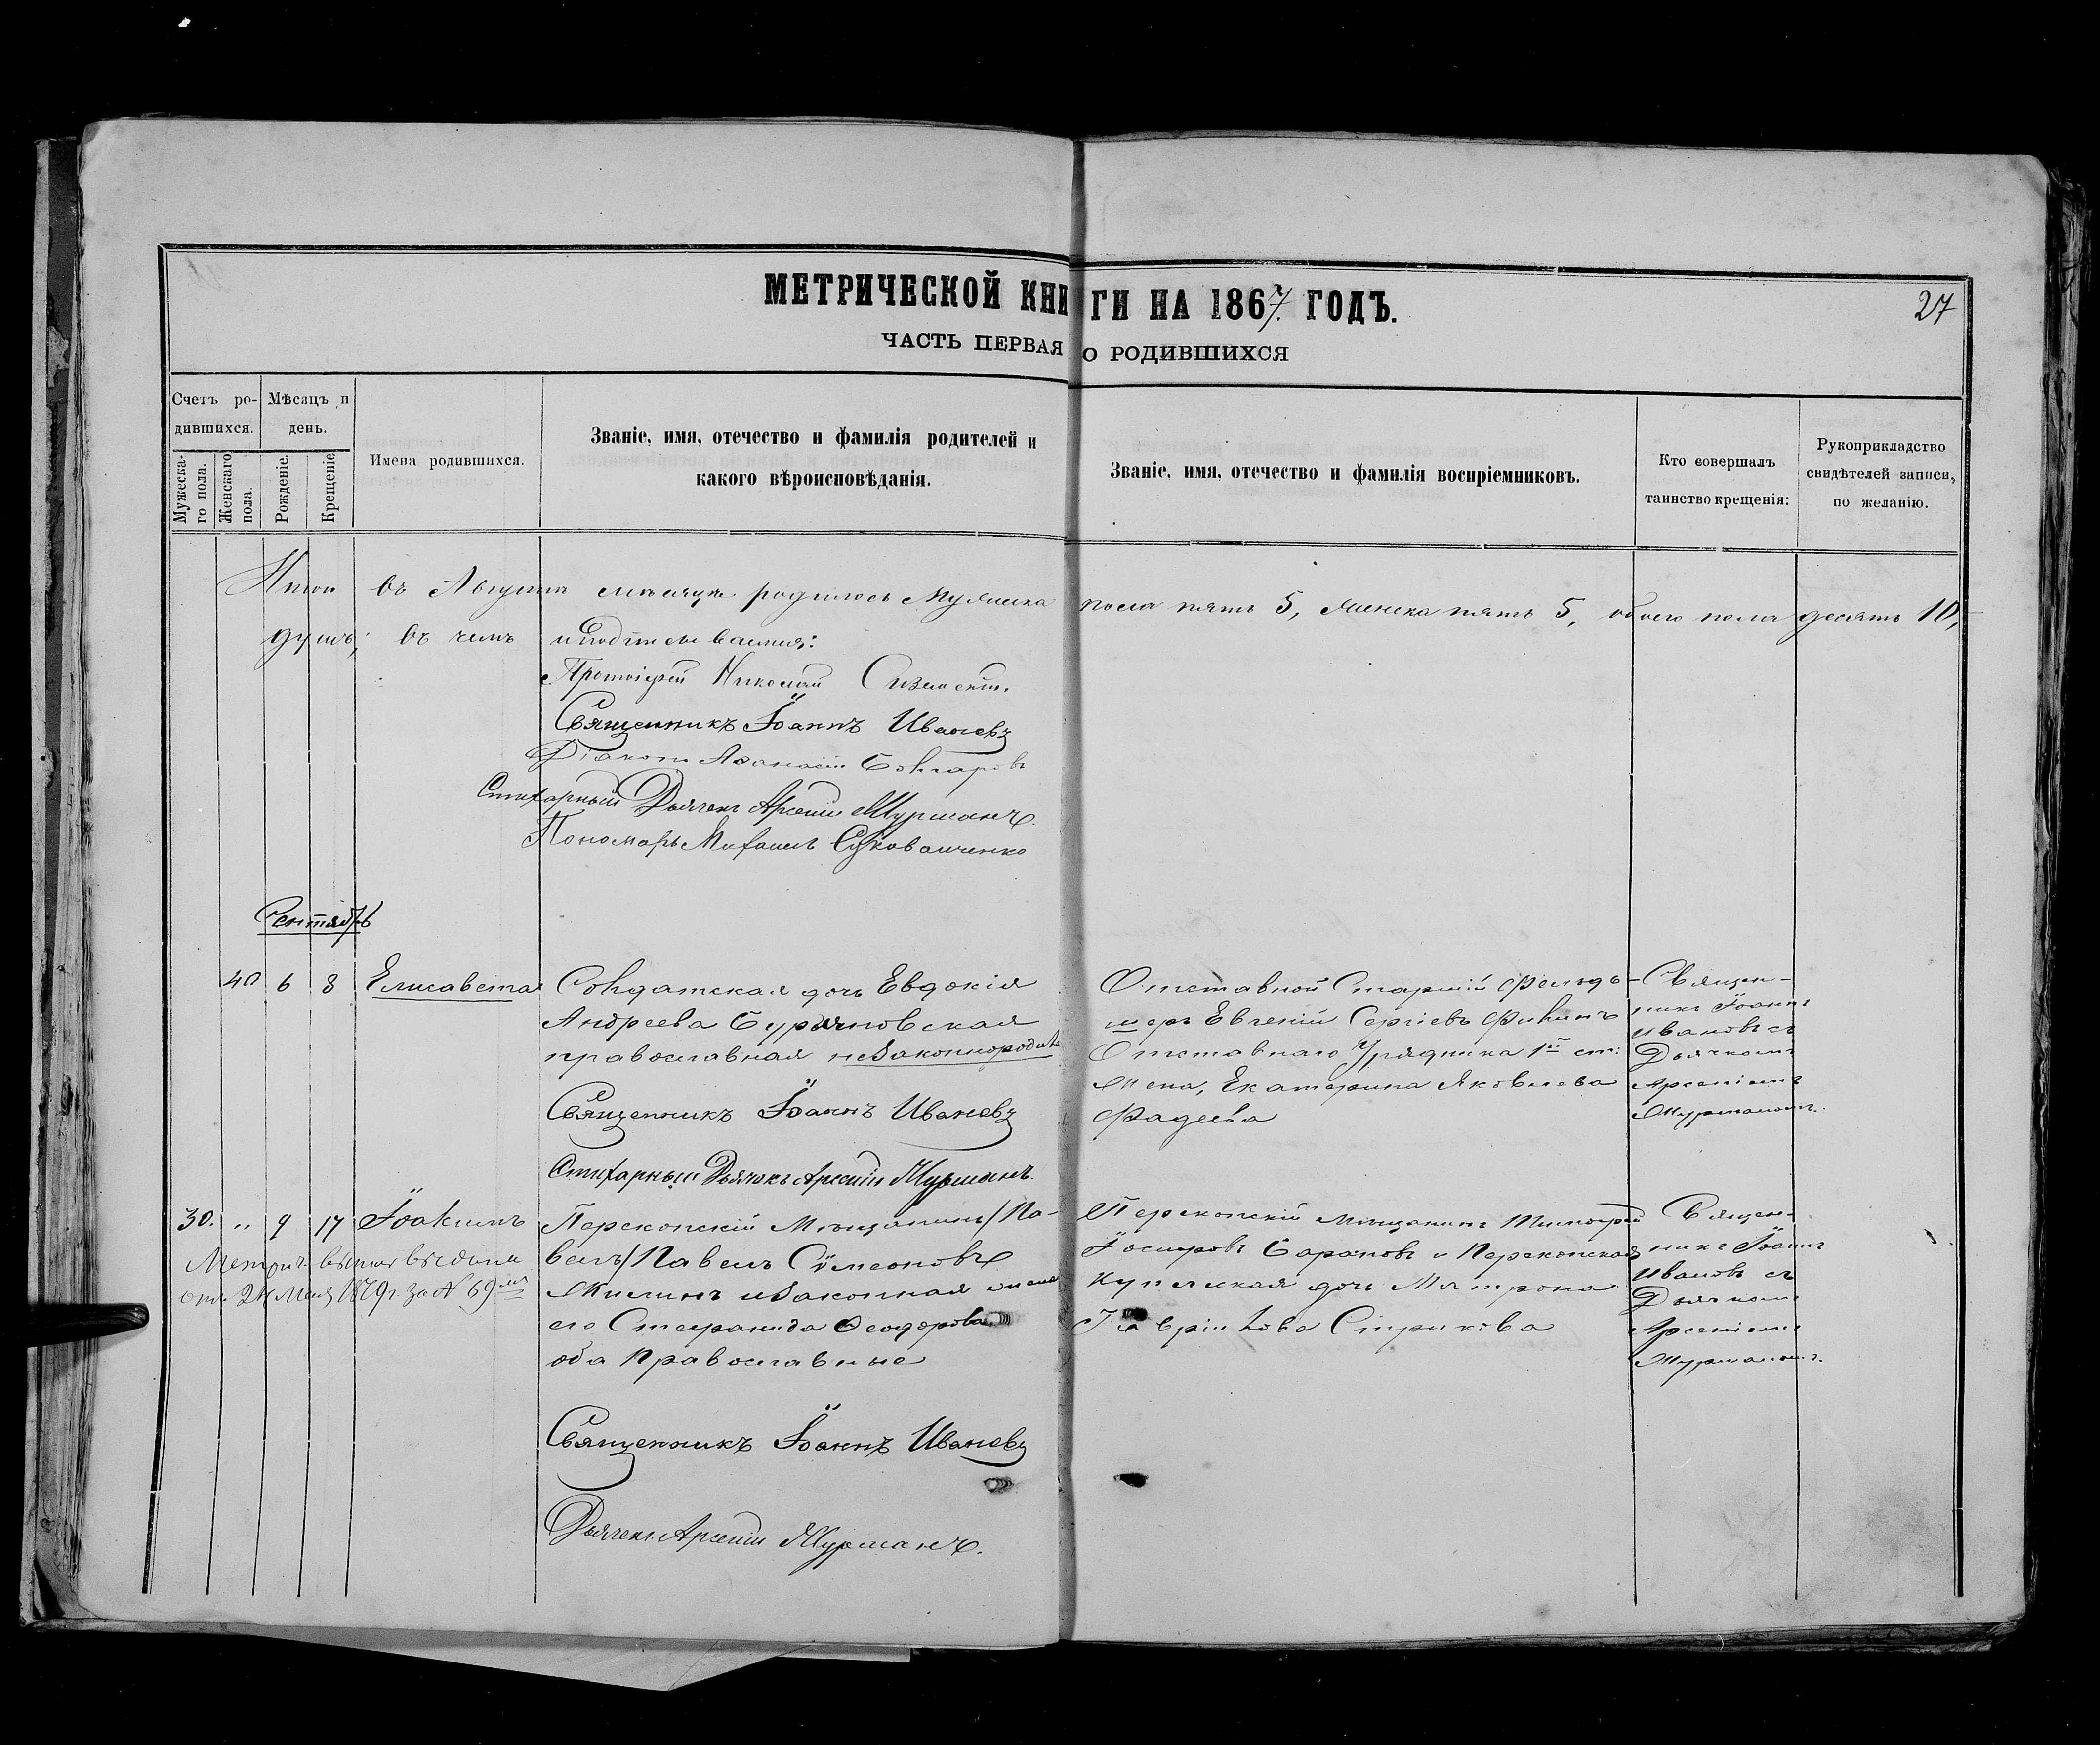 МЕТРИЧЕСКОЙ КНИГИ НА 1867. ГОДЪ.
27
ЧАСТЬ ПЕРВАЯ О РОДИВШИХСЯ
Счетъ ро-
дившихся.
Мужеска-
го пола.
Женскаго
пола.
Мѣсяцъ и
день.
Рожденіе.
Крещеніе
Имена родившихся.
Званіе, имя, отечество и фамилія родителей и
какого вѣроисповѣданія.
Званіе, имя, отечество и фамилія воспріемниковъ.
Кто совершалъ
таинство крещенія:
Рукоприкладство
свидѣтелей записи,
по желанію.
Итого въ Августѣ мѣсяцѣ родилось Мужеска пола пять 5, женска пять 5, обоего пола десять 10,
душъ; въ чемъ и подписываемся:
Протоіерей Николай
Священникъ Іоаннъ Ивановъ
Діаконъ Аѳанасій
Стихарный Дьячекъ Арсеній Мурманъ.
Пономарь Михаилъ
Сентябрь
40 6 8 Елисавета
Солдатская дочь Евдокія
Андреева Бурьяновская
православная незаконнород.
Священникъ Іоаннъ Ивановъ
Стихарный Дьячокъ Арсеній Мурманъ.
Отставной Старшій Фельд-
шеръ Евгеній Сергіевъ Филинъ
Отставнаго Урядника 1й ст:
жена, Екатерина Яковлева
Фадеева
Священ-
никъ Іоаннъ
Ивановъ съ
Дьячкомъ
Арсеніемъ
Мурманомъ.
30. „ 9 17 Іоакимъ
Метрич. выпись выдана
отъ 24 Мая 1879 г. за № 69мъ
Перекопскій Мѣщанинъ /Па-
велъ/ Павелъ Сѵмеоновъ
и законная жена
его Стефанида Ѳеодорова
оба Православные
Священникъ Іоаннъ Ивановъ
Дьячекъ Арсеній Мурманъ.
Перекопскій мѣщанинъ Тимофей
Іосифовъ Сарановъ и Перекопская
купеческая дочь Матрона
Гавріилова Стрикова
Священ-
никъ Іоаннъ
Ивановъ съ
Дьячкомъ
Арсеніемъ
Мурманомъ.